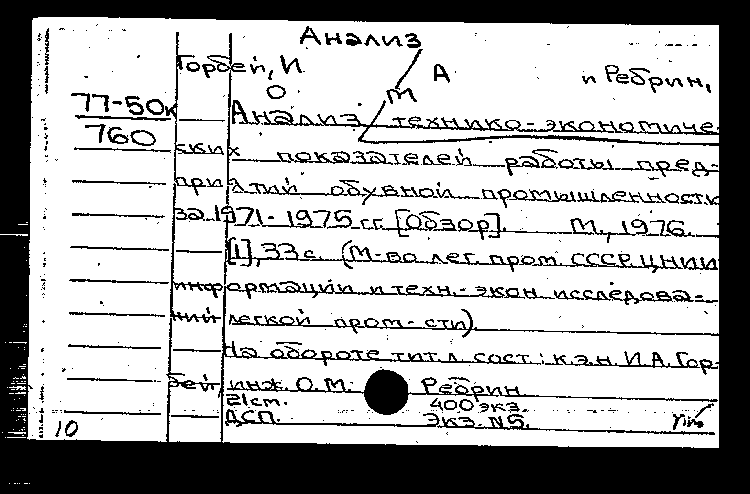 Анализ
Горбей, И А и Ребрин,
О М
77-50к Анализ технико-экономиче-
760
ских показателей работы пред-
приятий обувной промышленности
за 1971-1975 гг. [Обзор]. М., 1976.
[1], 33 с. (М-во лег. пром. СССР. ЦНИИ
информации и техн.-экон. исследова-
ний легкой пром-сти).
На обороте тит. л. сост.: к.э.н. И.А. Гор-
бей, инж. О.М. Ребрин
21 см. 400 экз.
ДСП. Экз. N5.
10